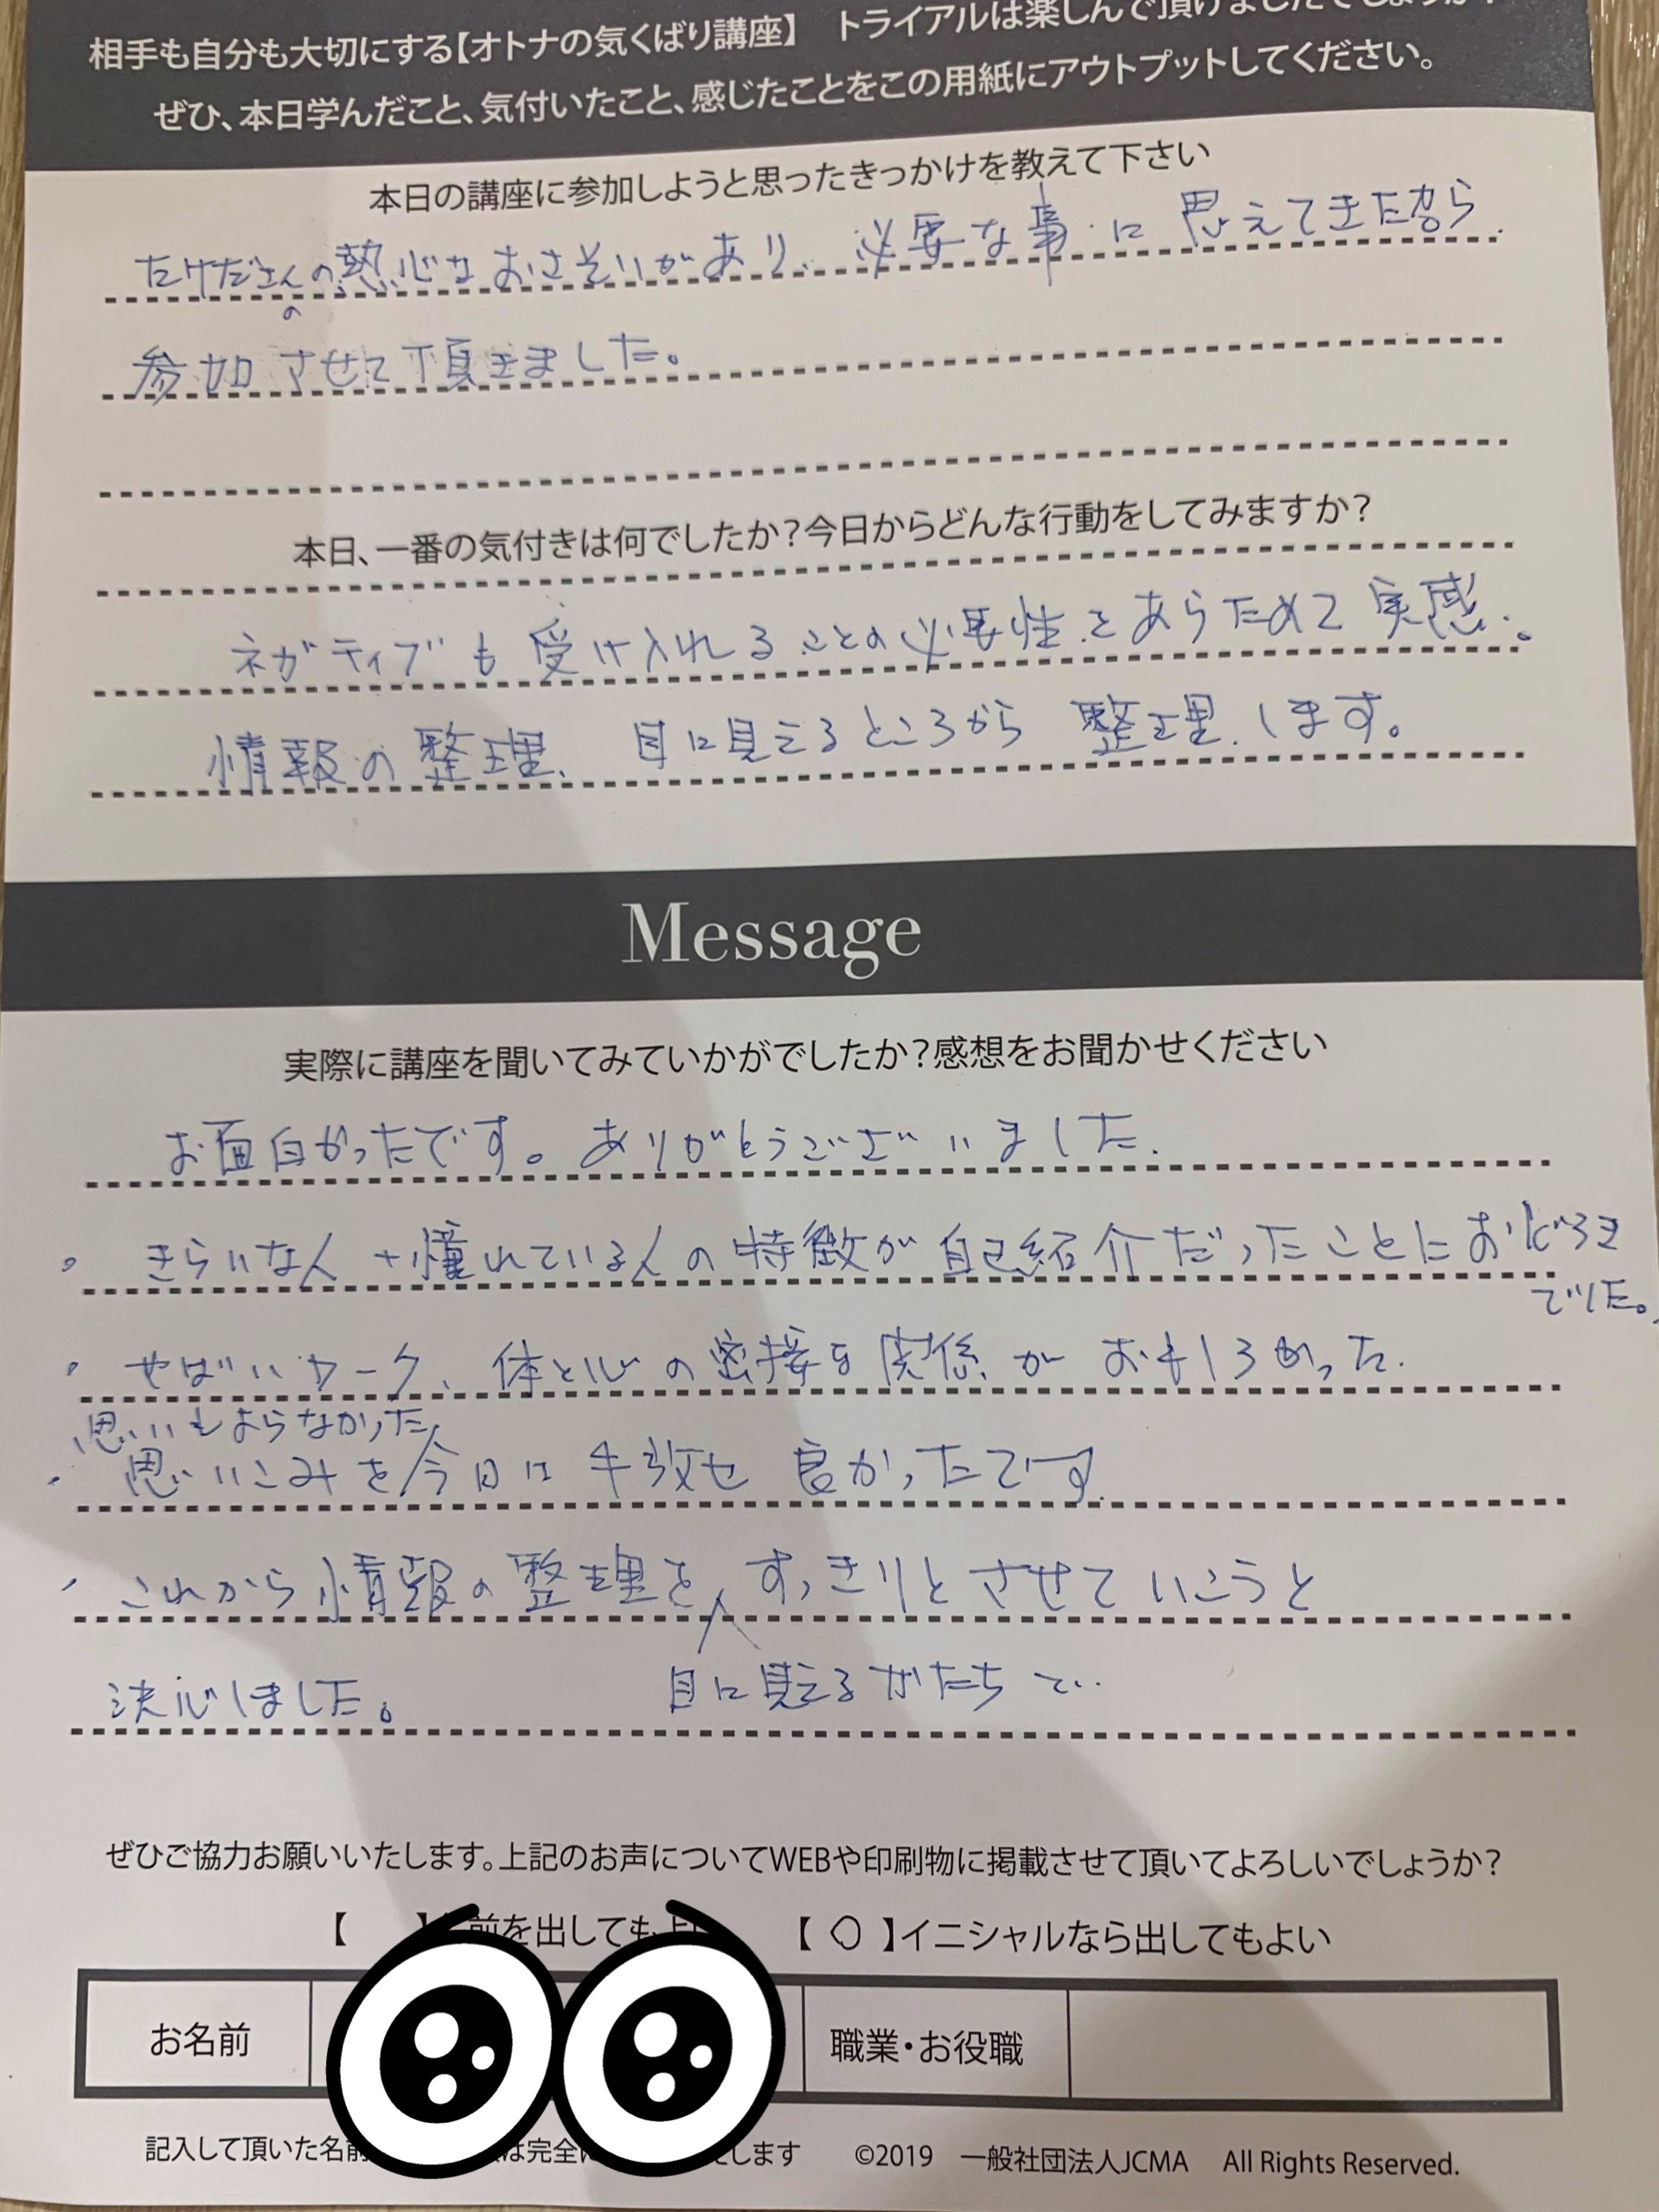 相手も自分も大切にする【オトナの気くばり講座】 トライアルは楽しんで頂けましたでしょうか?
ぜひ、本日学んだこと、気付いたこと、感じたことをこの用紙にアウトプットしてください。
本日の講座に参加しようと思ったきっかけを教えて下さい
たけださんの熱心なおさそいがあり、必要な事に思えてきたから
参加させて頂きました。
本日、一番の気付きは何でしたか?今日からどんな行動をしてみますか?
ネガティブも受け入れることの必要性をあらためて実感。
情報の整理、目に見えるところから整理します。
Message
実際に講座を聞いてみていかがでしたか?感想をお聞かせください
お面白かったです。ありがとうございました。
・きらいな人+憧れている人の特徴が自己紹介だったことにおどろき
でした。
・やばいワーク、体と心の密接な関係がおもしろかった。
思いもよらなかった
・思いこみを今日は手放せ良かったです。
・これから情報の整理をすっきりとさせていこうと
目に見えるかたちで
決心しました。
ぜひご協力お願いいたします。上記のお声についてWEBや印刷物に掲載させて頂いてよろしいでしょうか?
【 】 前を出しても 【 ○ 】イニシャルなら出してもよい
お名前 職業・お役職
記入して頂いた名前 は完全に します ©2019 一般社団法人JCMA All Rights Reserved.